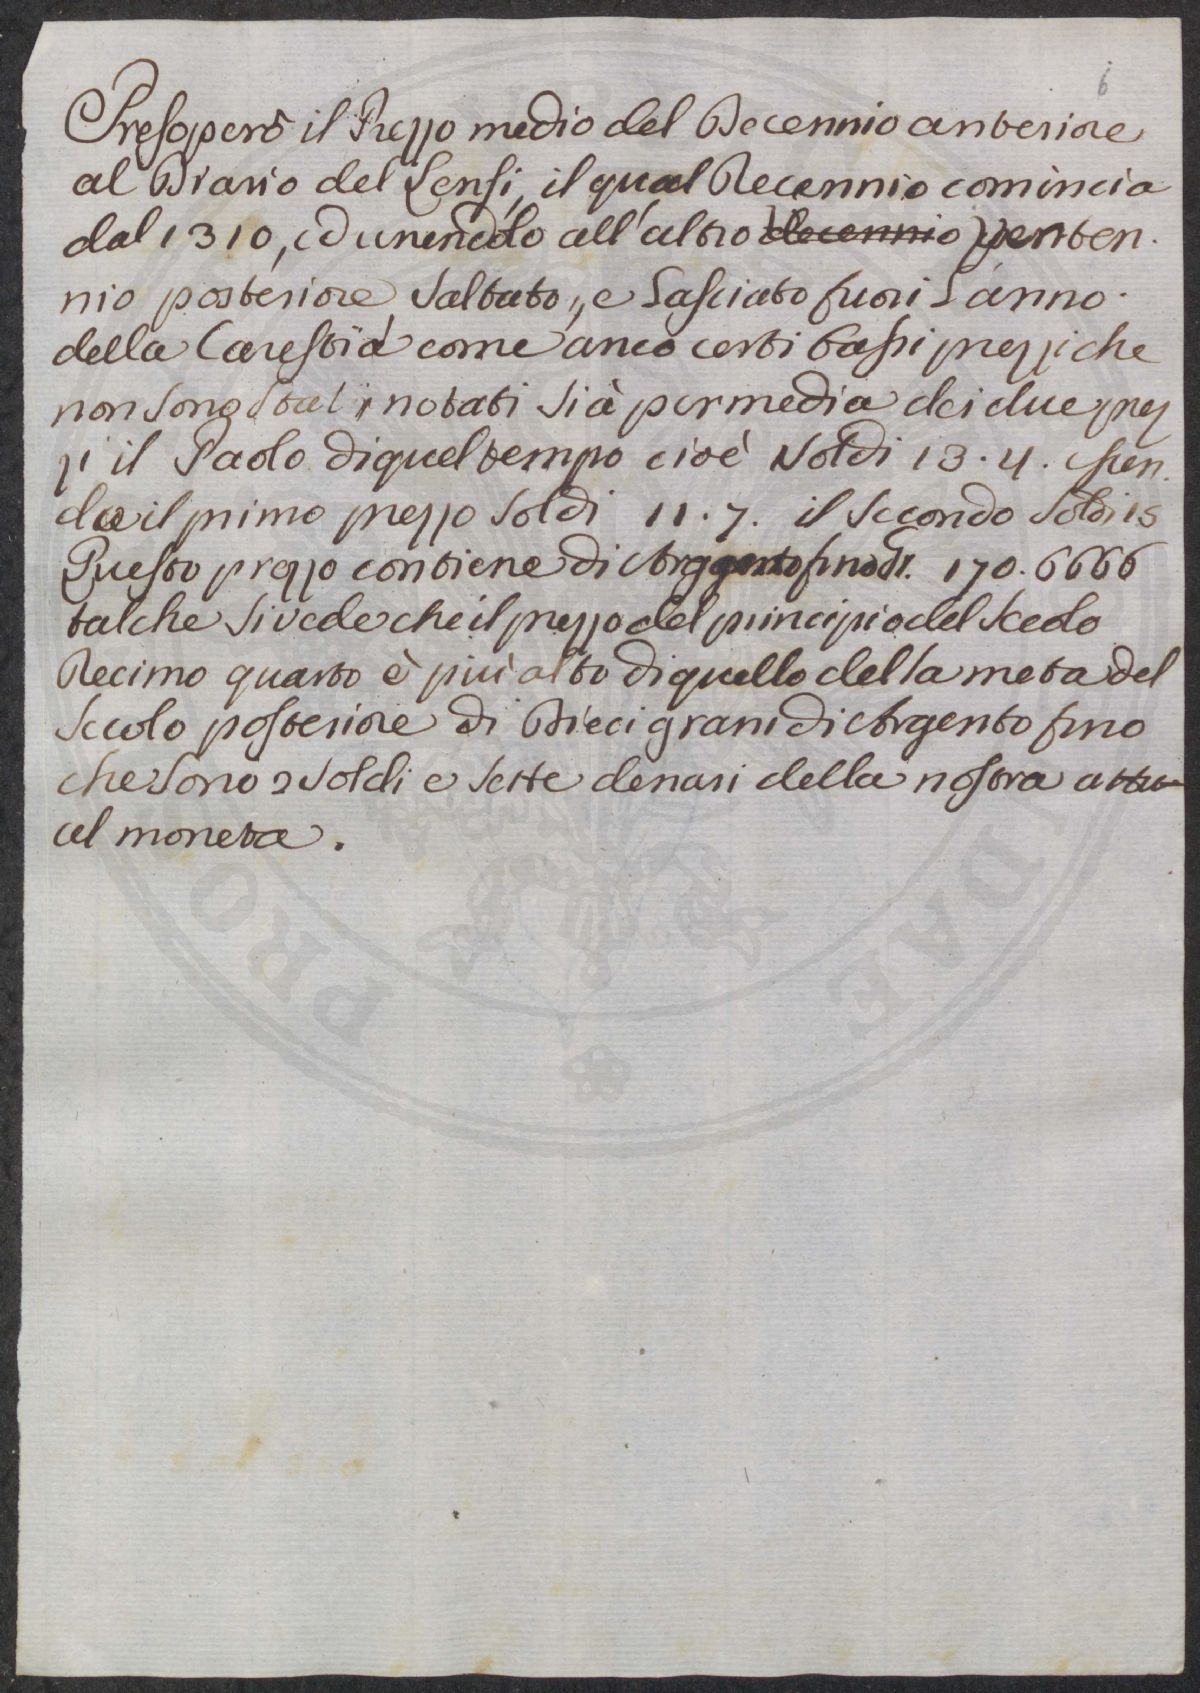 6
Preso però il Prezzo medio del Decennio anteriore
al Diario del Lensi, il qual Decennio comincia
dal 1310, ed unendolo all'altro decennio venten-
nio posteriore saltato, e lasciato fuori l'anno
della Carestia come anco certi bassi prezzi che
non sono stati notati si à per media dei due prez
zi il Paolo di quel tempo cioè Soldi 13.4. essen
do il primo prezzo soldi 11.7. il secondo soldi 15
Questo prezzo contiene di Argento fino Gr. 170.6666
talche si vede che il prezzo del principio del Secolo
Decimo quarto è piu alto di quello della meta del
Secolo posteriore di Dieci grani di Argento fino
che sono 2 soldi e sette denari della nostra attu-
al moneta.
PRO